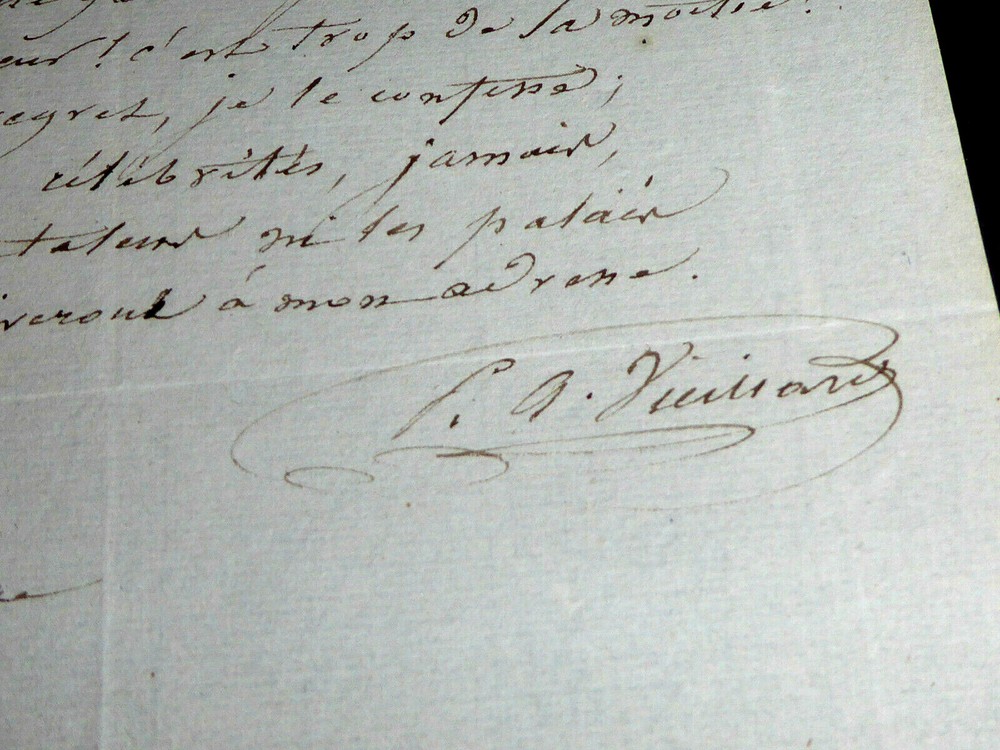 eur ! c'est trop de la moitié !
regret, je le confesse ;
célébrités, jamais,
tateurs ni les palais
iveront à mon adresse.
P. A. Vieillard